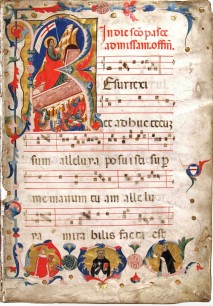 In die sco pasce
ad missam. offm
Resurrexi
et ad huc tecu
sum alleluya. posuisti sup
me manum tu am alle lu
ya mira bilis facta est